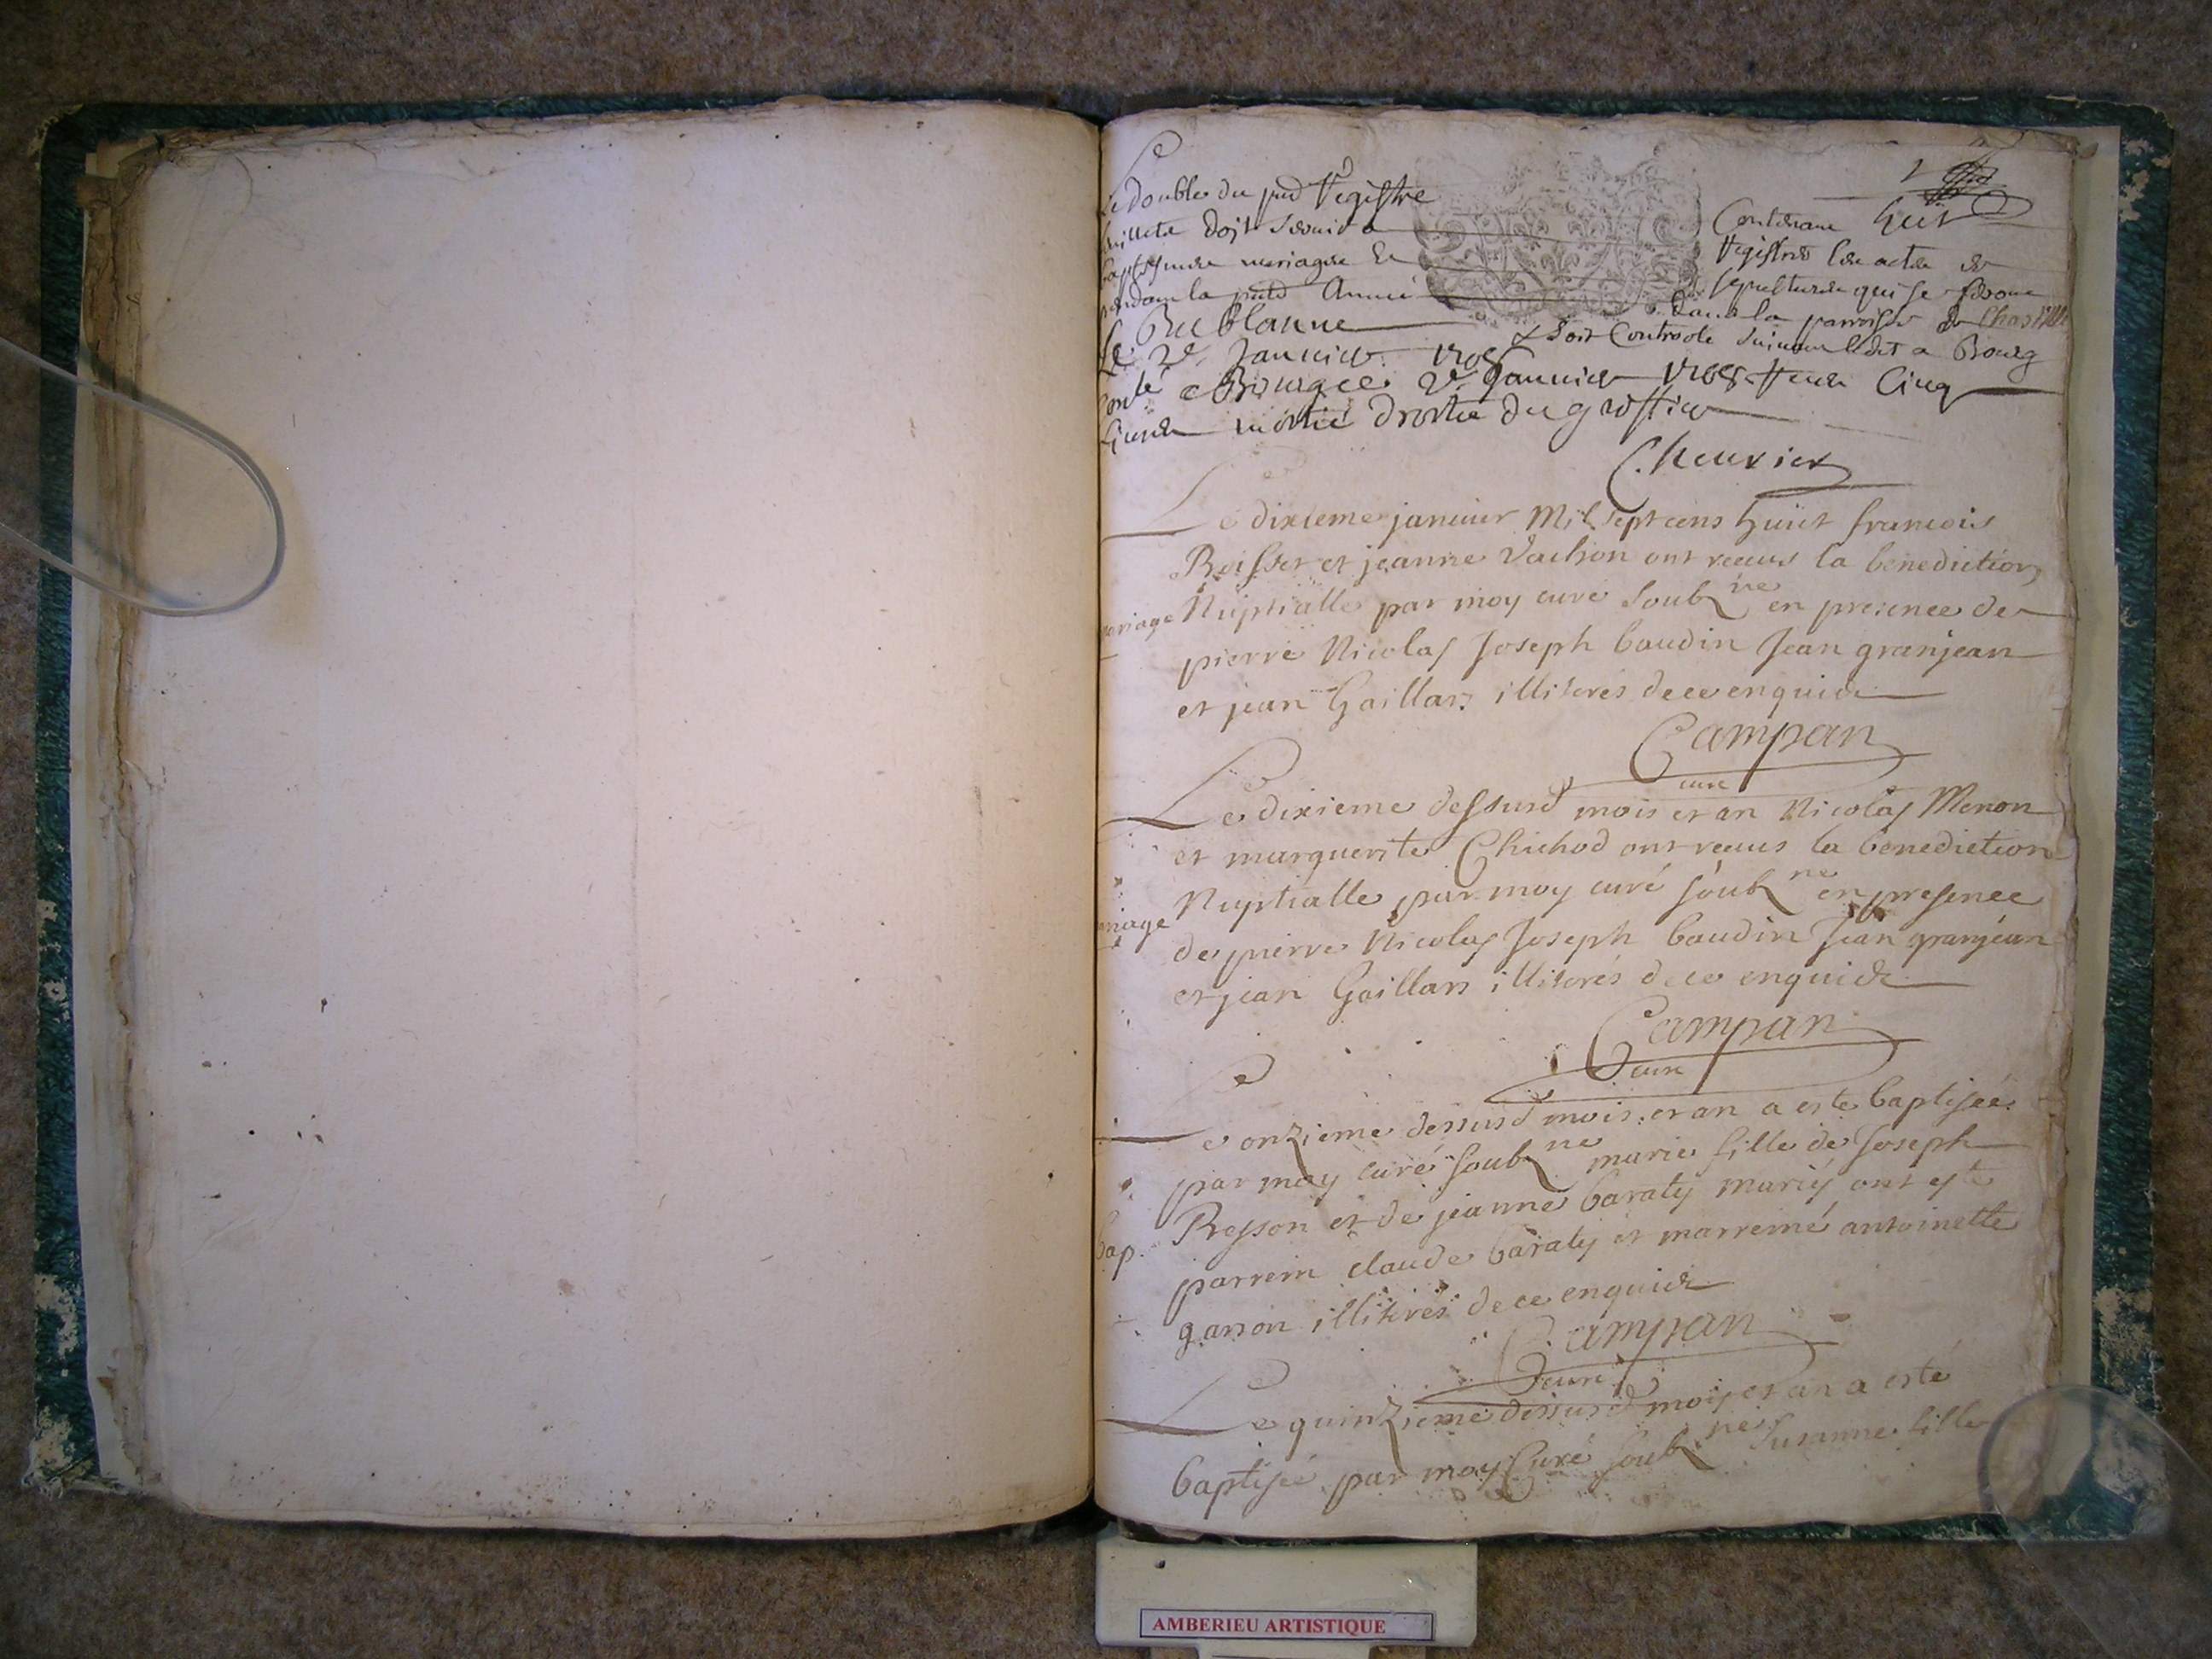 Le double du pnt Registre Contenant huit
feuillets doit servir a Registrer les actes de
baptesmes mariages et sepultures qui se feront
pendant la pnte Année dans la parroisse de Chastillon
la Palud
Le 2e Janvier 1708 & soit Controole suivant ledit a Bourg
Conlé a Bourg ce 2e Janvier 1708 Cinq
livres moitié droits du greffier
Chevrier
Le dixieme janvier Mil sept cens huict francois
Boisset et jeanne Vachon ont receus la benediction
mariage Nuptialle par moy curé soubzne en presence de
pierre Nicolas Joseph baudin Jean granjean
et jean Gaillars illiterés de ce enquis
Campan
curé
Le dixieme dessusd mois et an Nicolas Menon
et marguerite Chichod ont receus la benediction
mariage Nuptialle par moy curé soubzne en presence
de pierre Nicolas Joseph baudin Jean granjean
et jean Gaillars illiterés de ce enquis
Campan
curé
Le onzieme dessusd mois et an a este baptisée
par moy curé soubzne marie fille de Joseph
bap. Besson et de jeanne baraty mariés ont este
parrein claude baraty et marreine antoinette
garson illiterés de ce enquis
Campan
curé
Le quinzieme dessusd mois et an a esté
baptisée par moy Curé soubzne Susanne fille
AMBERIEU ARTISTIQUE